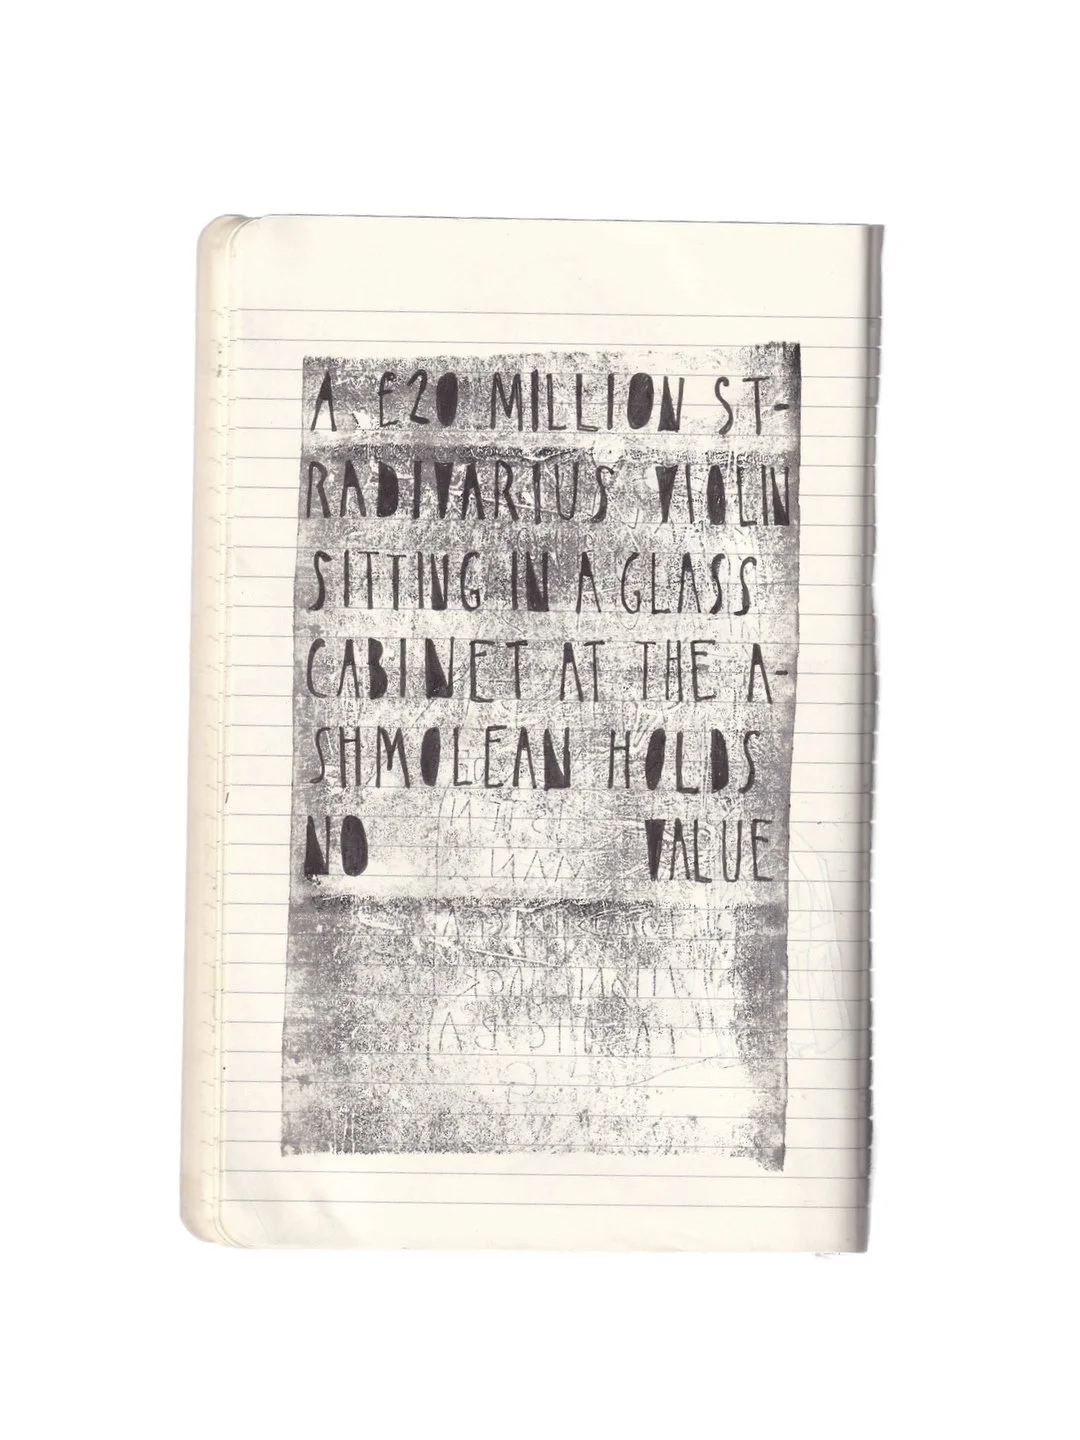 A £20 MILLION ST-
RADIVARIUS VIOLIN
SITTING IN A GLASS
CABINET AT THE A-
SHMOLEAN HOLDS
NO VALUE